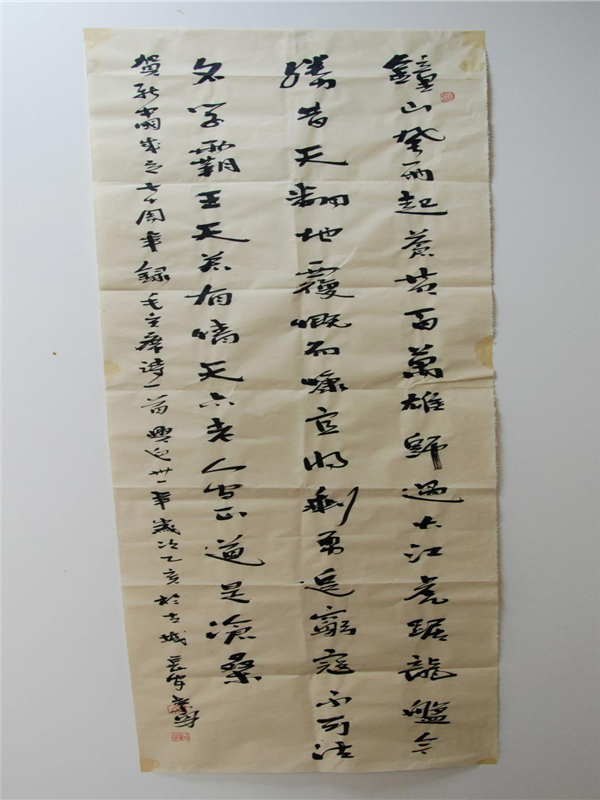 鐘山風雨起蒼黃百萬雄師過大江虎踞龍盤今
勝昔天翻地覆慨而慷宜將剩勇追窮寇不可沽
名學霸王天若有情天亦老人間正道是滄桑
賀新中國成立七十周年錄毛主席诗一首 歲次乙亥於古城長安